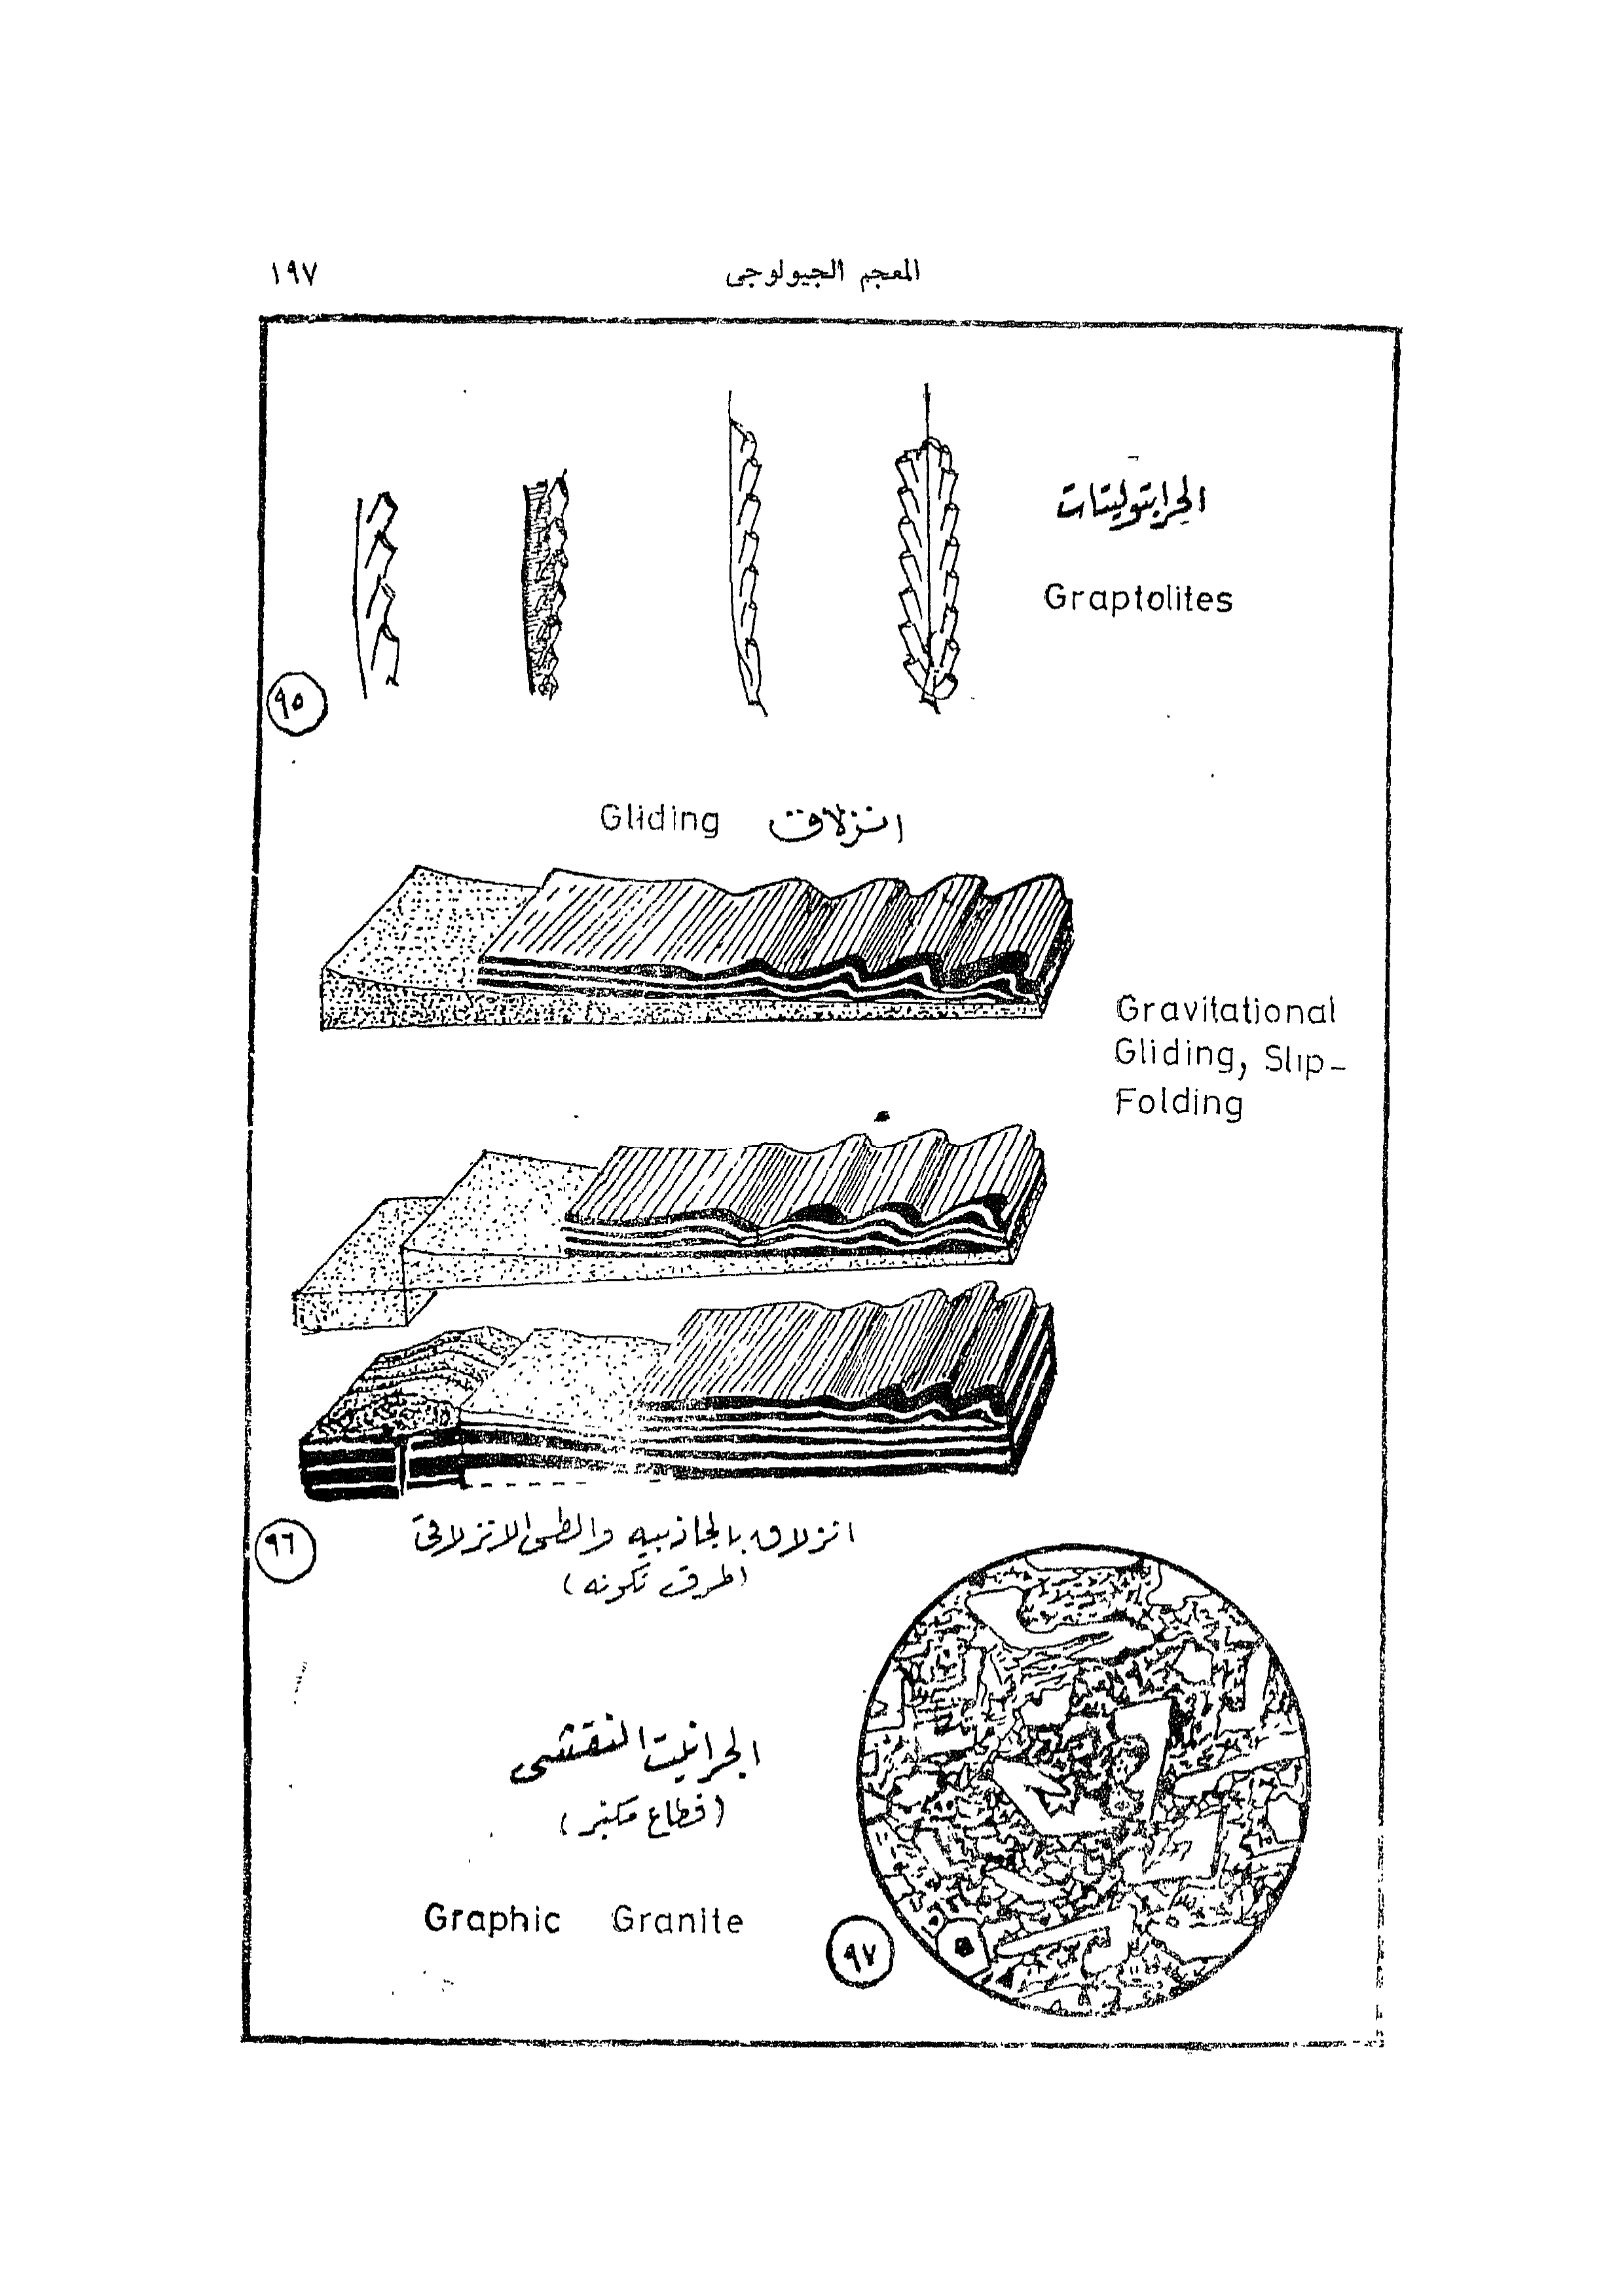 المعجم الجيولوجى
١٩٧
الجرابتوليتات
Graptolites
٩٥
Gliding انزلاق
Gravitational
Gliding, Slip-
Folding
انزلاق بالجاذبيه والطى الانزلاقى
(طرق تكونه)
٩٦
الجرانيت النقشى
(قطاع مكبر)
Graphic Granite
٩٧